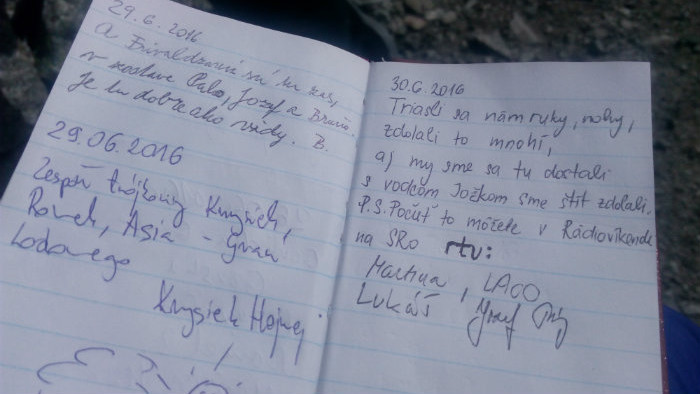 29.6. 2016
a sú tu zas,
v zostave Palo, Jozef a Braňo.
Je tu dobre ako vždy. B.
29.06.2016
Zespół trójkowy Krzysiek,
Romek, Asia - Gran
Lodowego
Krzysiek
30.6.2016
Triasli sa nám ruky, nohy,
zdolali to mnohí,
aj my sme sa tu dostali
s vodcom Jožkom sme štít zdolali.
P.S. Počuť to môžete v Rádiovíkende
na SRo rtv:
Martina, LACO
Lukáš Jozef